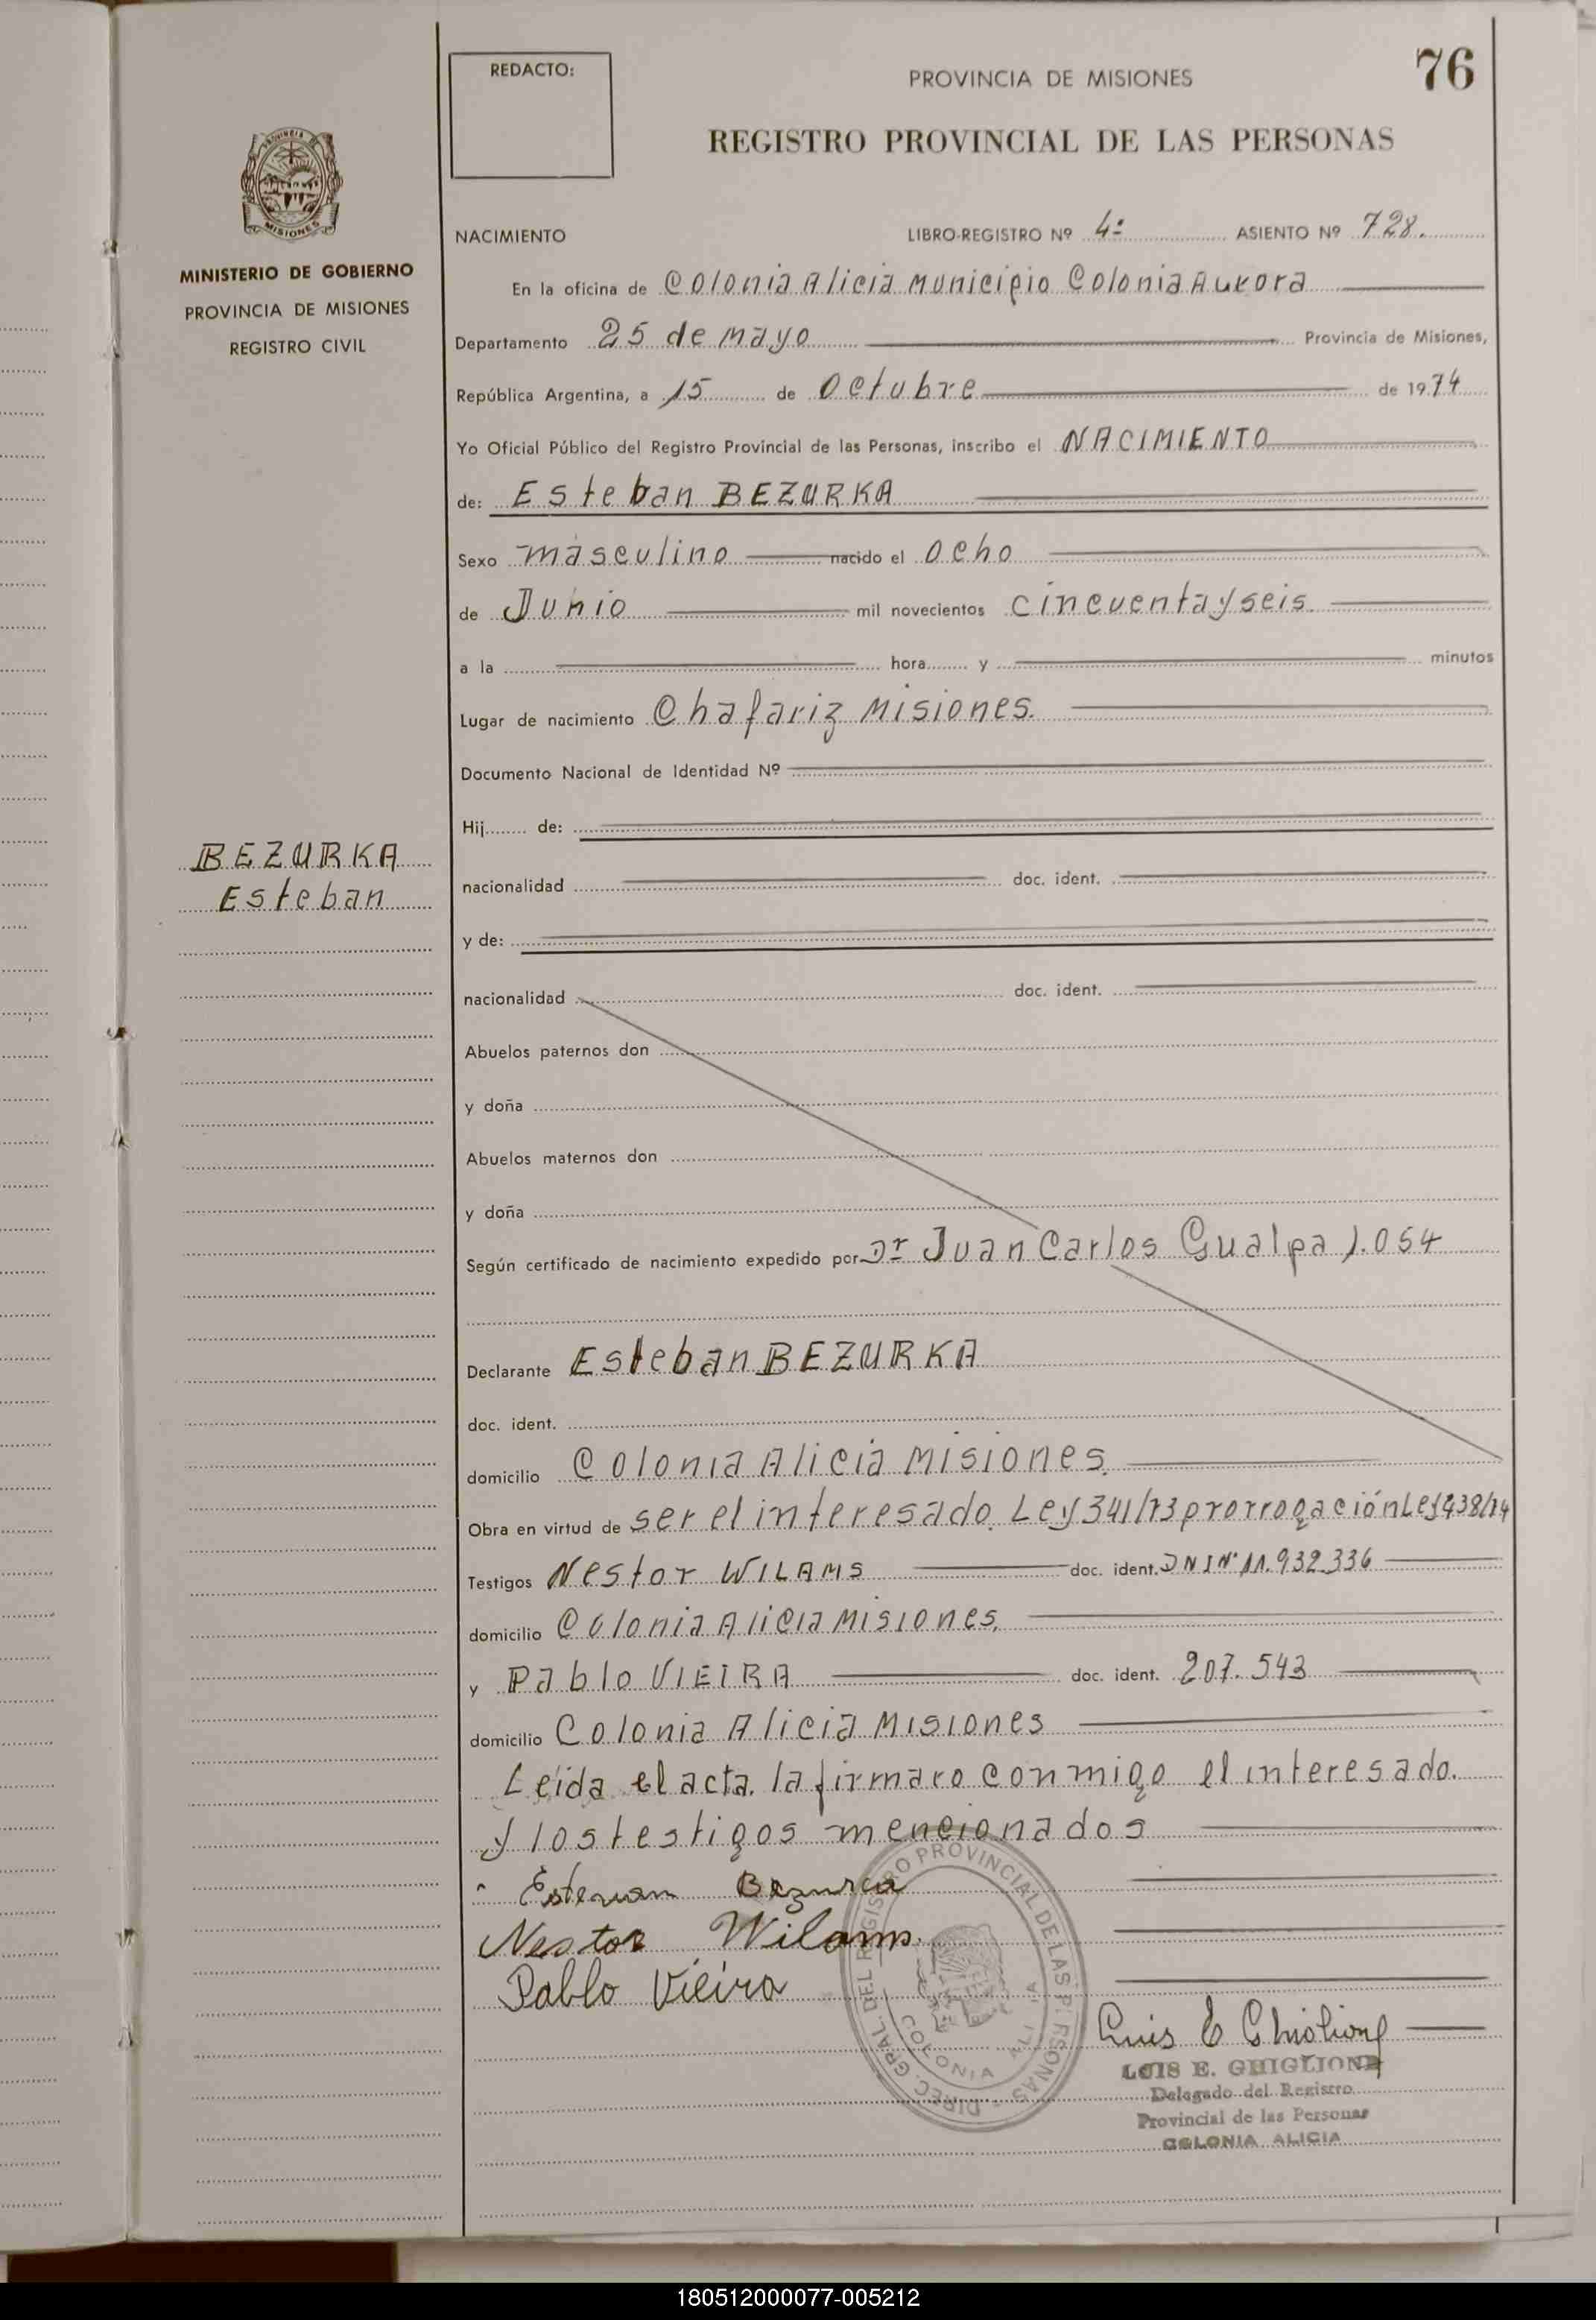 REDACTO:
PROVINCIA DE MISIONES
76
REGISTRO PROVINCIAL DE LAS PERSONAS
MISIONES
MINISTERIO DE GOBIERNO
PROVINCIA DE MISIONES
REGISTRO CIVIL
NACIMIENTO LIBRO-REGISTRO Nº 4º ASIENTO Nº 728.
En la oficina de Colonia Alicia Municipio Colonia Aurora
Departamento 25 de mayo Provincia de Misiones,
República Argentina, a 15 de Octubre de 1974
Yo Oficial Público del Registro Provincial de las Personas, inscribo el NACIMIENTO
de: Esteban BEZURKA
Sexo masculino nacido el ocho
de Junio mil novecientos cincuenta y seis
a la hora y minutos
Lugar de nacimiento Chafariz Misiones.
Documento Nacional de Identidad Nº
Hij de:
BEZURKA
Esteban
nacionalidad doc. ident.
y de:
nacionalidad doc. ident.
Abuelos paternos don
y doña
Abuelos maternos don
y doña
Según certificado de nacimiento expedido por Dr Juan Carlos Gualpa 1.054
Declarante Esteban BEZURKA
doc. ident.
domicilio Colonia Alicia Misiones.
Obra en virtud de ser el interesado. Ley 341/73 prorrogación Ley 438/74
Testigos Nestor WILAMS doc. ident. DNI Nº 11.932.336
domicilio Colonia Alicia Misiones.
y Pablo VIEIRA doc. ident. 207.543
domicilio Colonia Alicia Misiones
Leida el acta. la firmaro conmigo el interesado.
y los testigos mencionados
Estevam Bezurca
Nestor Wilams.
Pablo Vieira
DIREC. GRAL. DEL REGISTRO PROVINCIAL DE LAS PERSONAS
COLONIA ALICIA
Luis E Ghiglione
LUIS E. GHIGLIONE
Delegado del Registro
Provincial de las Personas
COLONIA ALICIA
180512000077-005212